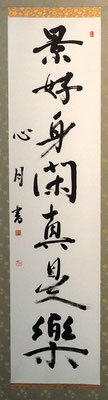 景好身閑真是樂
心月書